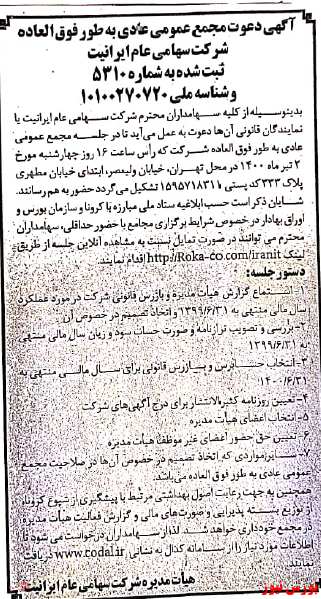 آگهی دعوت مجمع عمومی عادی به طور فوق العاده
شرکت سهامی عام ایرانیت
ثبت شده به شماره ۵۳۱۰
و شناسه ملی ۱۰۱۰۰۲۷۰۷۲۰
بدینوسیله از کلیه سهامداران محترم شرکت سهامی عام ایرانیت یا
نمایندگان قانونی آن‌ها دعوت به عمل می‌آید تا در جلسه مجمع عمومی
عادی به طور فوق العاده شرکت که رأس ساعت ۱۶ روز چهارشنبه مورخ
۲ تیر ماه ۱۴۰۰ در محل تهران، خیابان ولیعصر، ابتدای خیابان مطهری
پلاک ۳۳۳ کد پستی ۱۵۹۵۷۱۸۳۱۱ تشکیل می‌گردد حضور به هم رسانند.
شایان ذکر است حسب ابلاغیه ستاد ملی مبارزه با کرونا و سازمان بورس و
اوراق بهادار در خصوص شرایط برگزاری مجامع با حضور حداقلی، سهامداران
محترم می توانند در صورت تمایل نسبت به مشاهده آنلاین جلسه از طریق
لینک http://Roka-co.com/iranit اقدام نمایند.
دستور جلسه:
۱- استماع گزارش هیأت مدیره و بازرس قانونی شرکت در مورد عملکرد
سال مالی منتهی به ۱۳۹۹/۶/۳۱ و اتخاذ تصمیم در خصوص آن
۲- بررسی و تصویب ترازنامه و صورت حساب سود و زیان سال مالی منتهی
به ۱۳۹۹/۶/۳۱
۳- انتخاب حسابرس و بازرس قانونی برای سال مالی منتهی به
۱۴۰۰/۶/۳۱
۴- تعیین روزنامه کثیرالانتشار برای درج آگهی‌های شرکت
۵- انتخاب اعضای هیأت مدیره
۶- تعیین حق حضور اعضای غیر موظف هیأت مدیره
۷- سایر مواردی که اتخاذ تصمیم در خصوص آن‌ها در صلاحیت مجمع
عمومی عادی به طور فوق العاده می‌باشد.
همچنین به جهت رعایت اصول بهداشتی مرتبط با پیشگیری از شیوع کرونا،
از توزیع بسته پذیرایی و صورت‌های مالی و گزارش فعالیت هیأت مدیره
در مجمع خودداری خواهد شد. لذا از سهامداران درخواست می‌شود تا
اطلاعات مورد نیاز را از سامانه کدال به نشانی www.codal.ir دریافت
نمایند.
هیأت مدیره شرکت سهامی عام ایرانیت
بورس نیوز